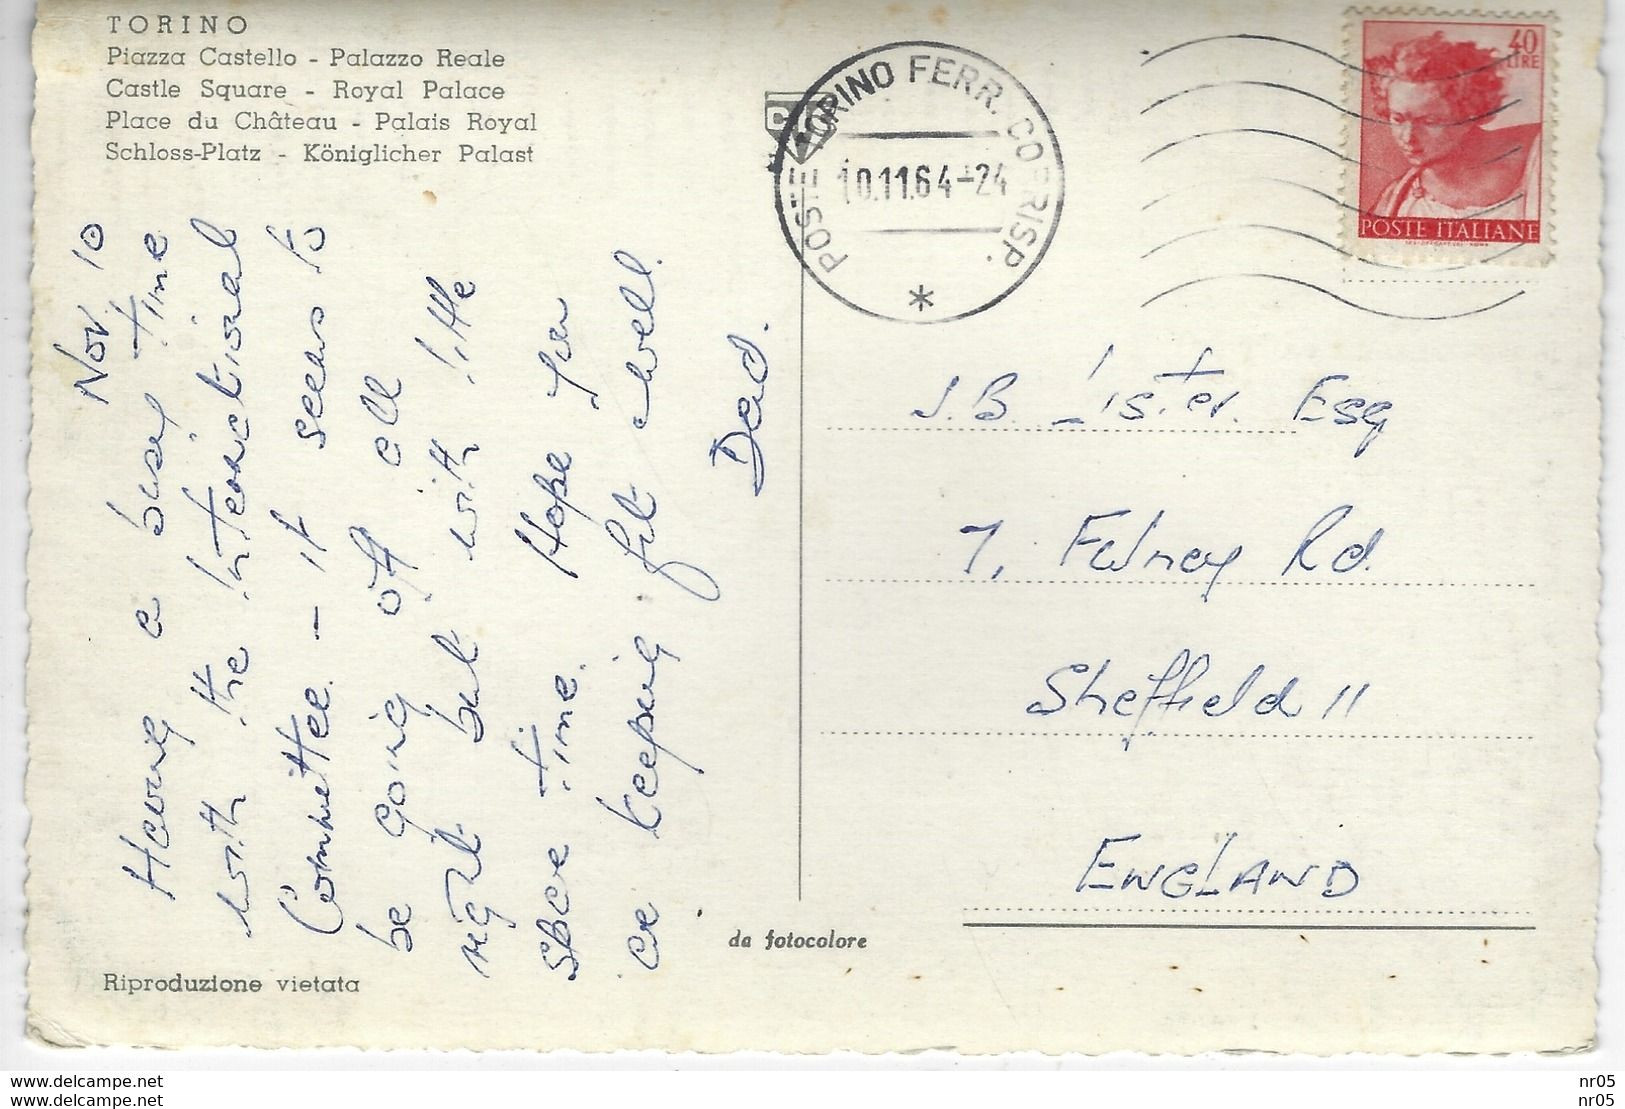 TORINO
Piazza Castello - Palazzo Reale
Castle Square - Royal Palace
Place du Château - Palais Royal
Schloss-Platz - Königlicher Palast
Nov 10
Having a busy time
with the International
Committee - it seems to
be going off all
right but with little
spare time. Hope you
are keeping fit & well.
Dad.
Riproduzione vietata
da fotocolore
POSTE TORINO FERR. CORRISP.
10.11.64-24
40
LIRE
POSTE ITALIANE
J.B. Lister. Esq
7, Rd
Sheffield 11
ENGLAND
www.delcampe.net
nr05
www.delcampe.net
nr05